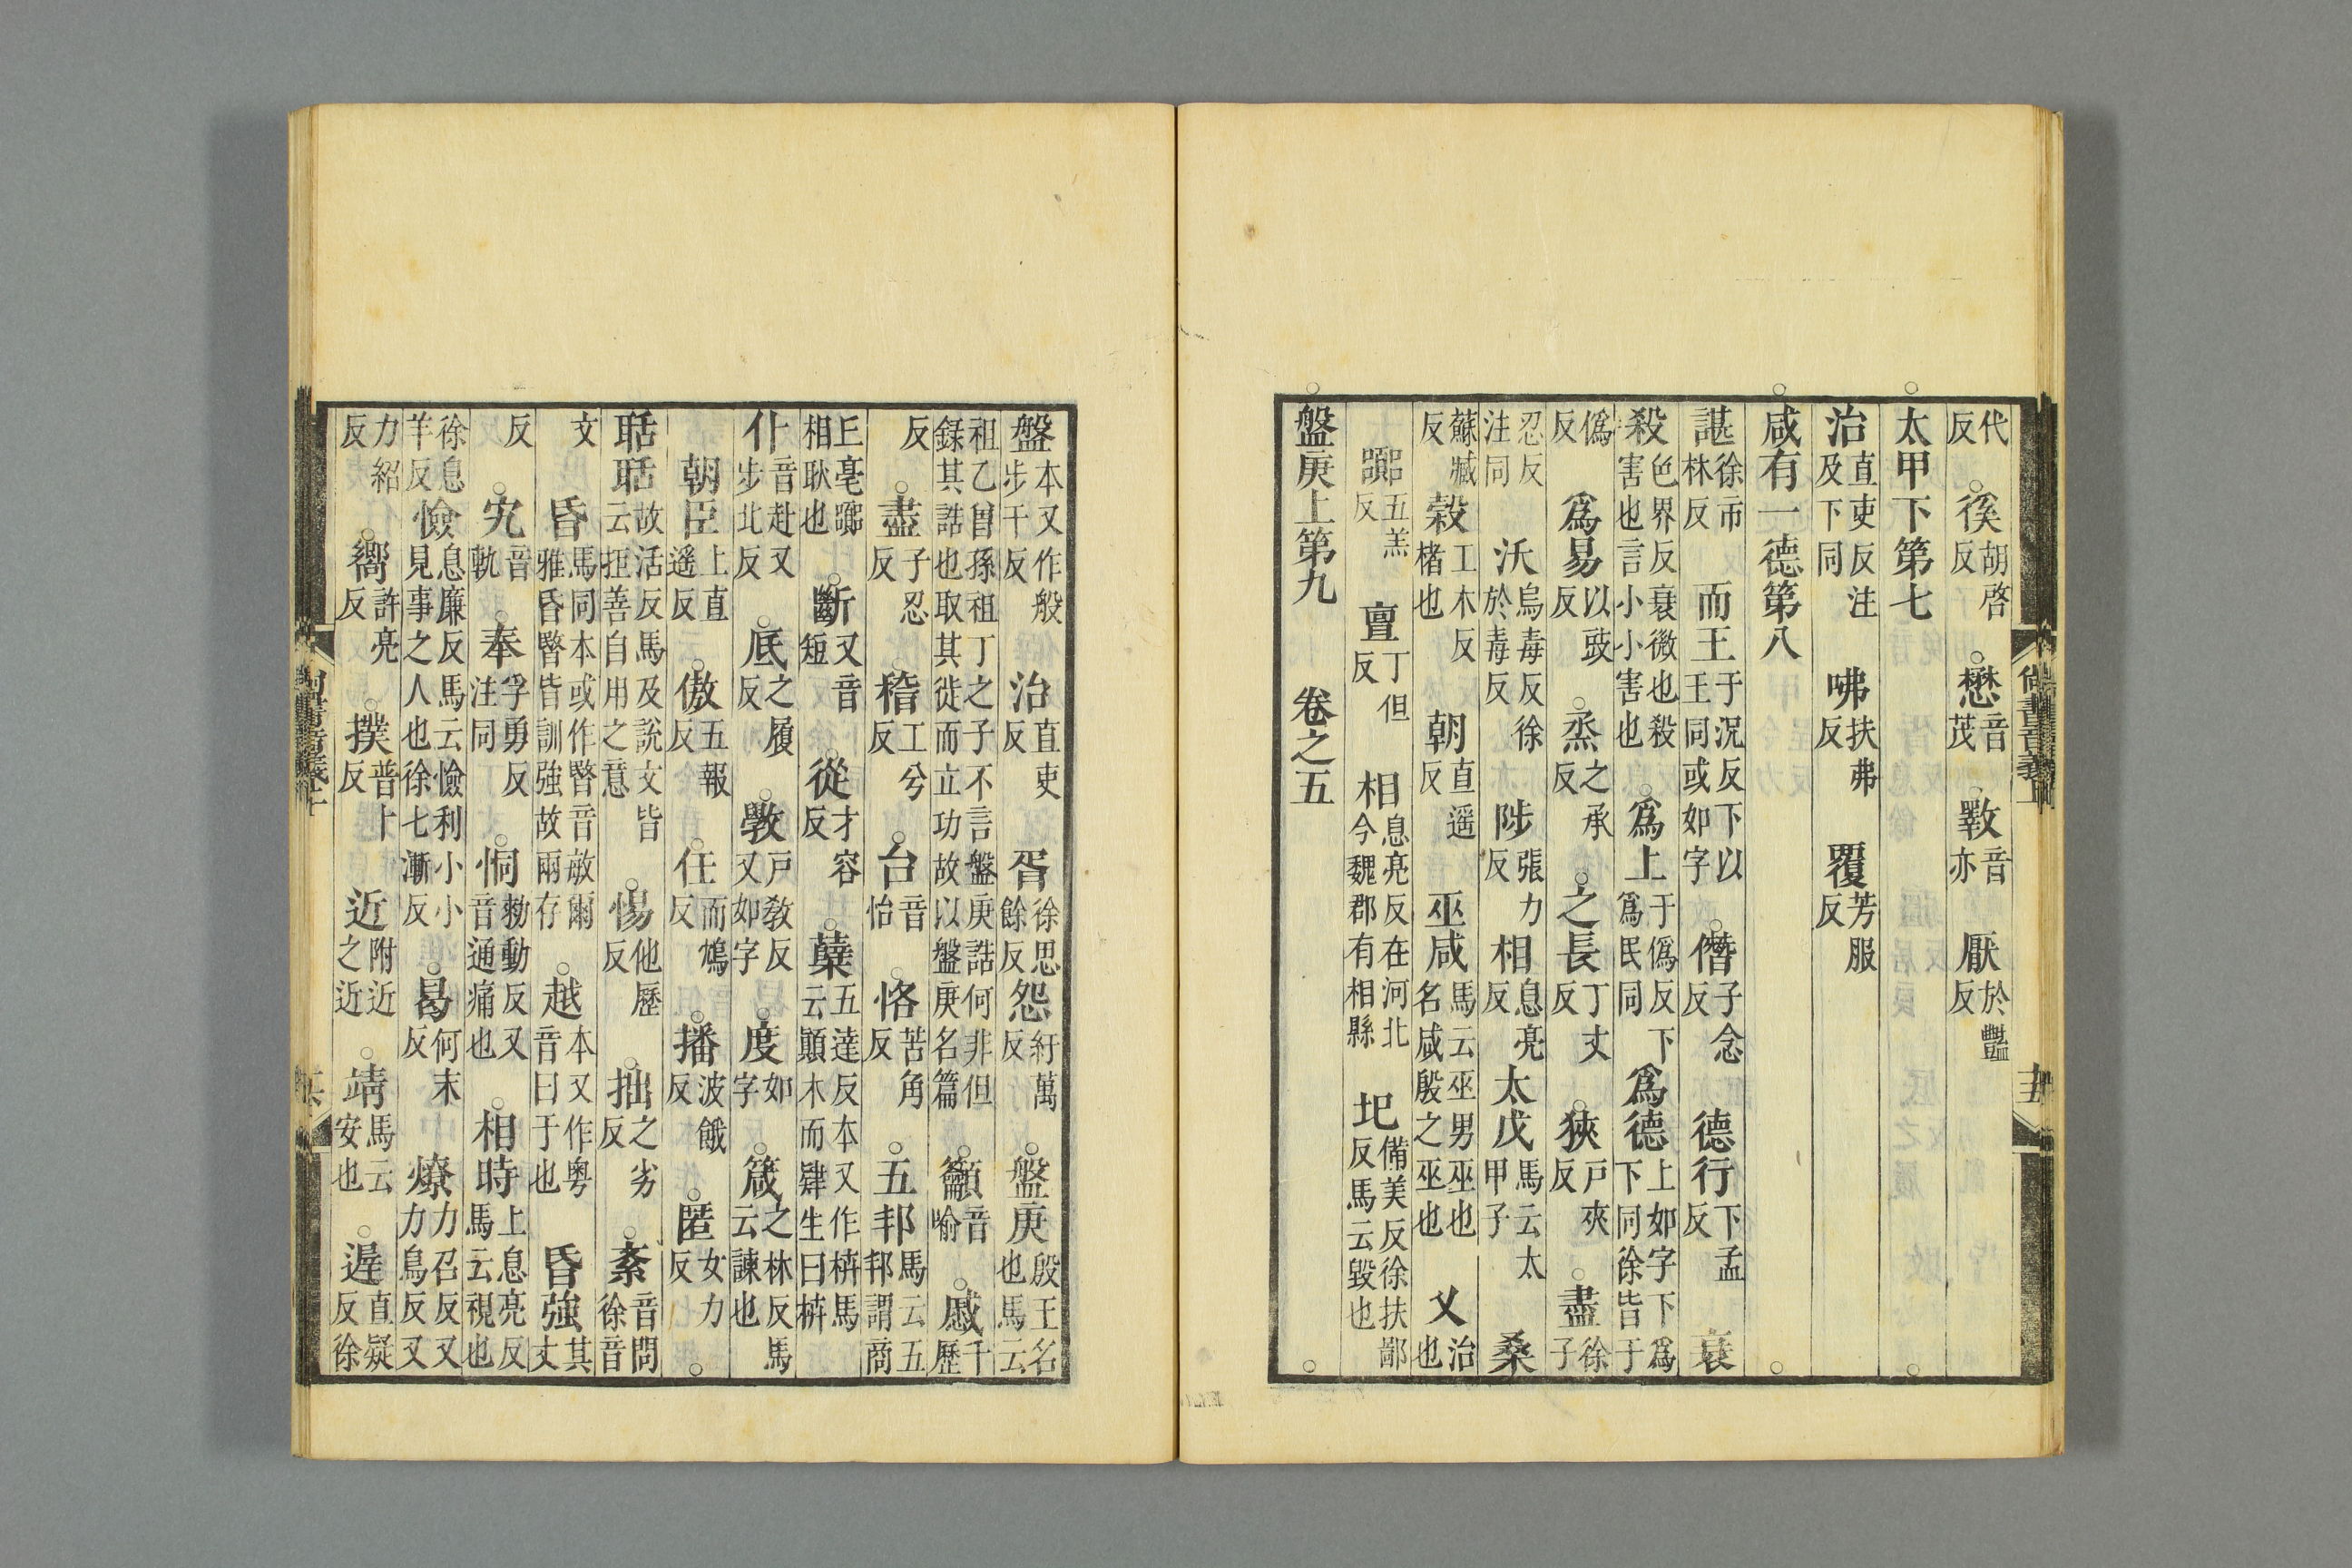 代反○徯胡啓反○懋音茂○斁音亦厭於豔反
○太甲下第七○
治直吏反注及下同咈扶弗反覆芳服反
○咸有一德第八○
諶徐市林反而王于況反下以王同或如字○僭子念反德行下孟反衰
殺色界反衰微也殺害也言小小害也○爲上于僞反下爲民同爲德上如字下爲下同徐皆于
僞反爲易以豉反○烝之承反○之長丁丈反○狹戶夾反○盡徐子
忍反注同沃烏毒反徐於毒反陟張力反相息亮反太戊馬云太甲子桑
穀蘇臧反工木反楮也朝直遥反巫咸馬云巫男巫也名咸殷之巫也乂治也
嚻五羔反亶丁但反相息亮反在河北今魏郡有相縣圯備美反徐扶鄙反馬云毀也
○盤庚上第九卷之五○
尚書音義上 十五
盤本又作般步干反治直吏反胥徐思餘反怨紆萬反○盤庚殷王名也馬云
祖乙曾孫祖丁之子不言盤庚誥何非但錄其誥也取其徙而立功故以盤庚名篇○籲音喻○慼千歷
反○盡子忍反○稽工兮反○台音怡○恪苦角反○五邦馬云五邦謂商
丘亳嚻相耿也○斷又音短○從才容反○蘖五達反本又作枿馬云顚木而肄生曰枿
仆音赴又步北反○底之履反○斆戶教反又如字○度如字○箴之林反馬云諫也
朝臣上直遥反○傲五報反○任而鴆反○播波餓反○匿女力反○
聒聒故活反馬及說文皆云拒善自用之意○惕他歷反○拙之劣反○紊音問徐音
文昏馬同本或作暋音敏爾雅昏暋皆訓強故兩存○越本又作粵音曰于也昏強其丈
反○宄音軌○奉孚勇反注同○恫勑動反又音通痛也○相時上息亮反馬云視也
徐息羊反憸息廉反馬云憸利小小見事之人也徐七漸反○曷何末反燎力召反又力鳥反又
力紹反○嚮許亮反○撲普卜反近附近之近○靖馬云安也○遲直疑反徐